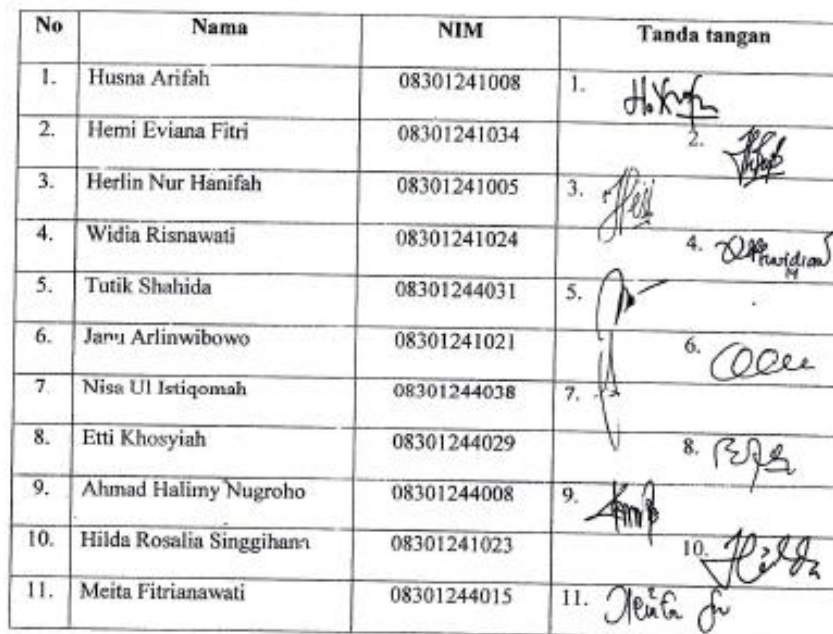 No Nama NIM Tanda tangan
1. Husna Arifah 08301241008 1.
2. Hemi Eviana Fitri 08301241034 2.
3. Herlin Nur Hanifah 08301241005 3.
4. Widia Risnawati 08301241024 4.
5. Tutik Shahida 08301244031 5.
6. Janu Arlinwibowo 08301241021 6.
7. Nisa Ul Istiqomah 08301244038 7.
8. Etti Khosyiah 08301244029 8.
9. Ahmad Halimy Nugroho 08301244008 9.
10. Hilda Rosalia Singgihann 08301241023 10. Hilda
11. Meita Fitrianawati 08301244015 11.